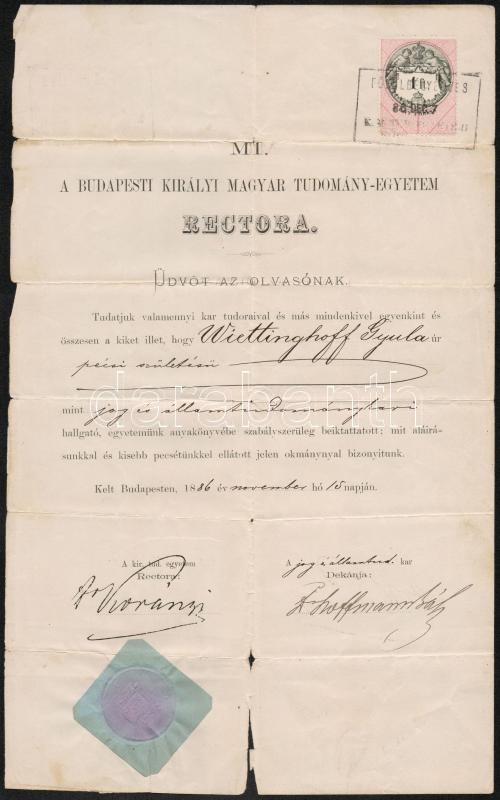 1 FR.
86 DEC 7
MT.
A BUDAPESTI KIRÁLYI MAGYAR TUDOMÁNY-EGYETEM
RECTORA.
ÜDVÖT AZ OLVASÓNAK.
Tudatjuk valamennyi kar tudoraival és más mindenkivel egyenkint és
összesen a kiket illet, hogy Wiettinghoff Gyula úr
pécsi születésü
mint jog és államtudománykari
hallgató, egyetemünk anyakönyvébe szabályszerüleg beiktattatott; mit aláirá-
sunkkal és kisebb pecsétünkkel ellátott jelen okmánynyal bizonyitunk.
Kelt Budapesten, 1886 év november hó 15 napján.
A kir. tud. egyetem
Rectora:
Dr Korányi
A jog és államtud. kar
Dekánja:
Dr Hoffmann Pál
darabanth